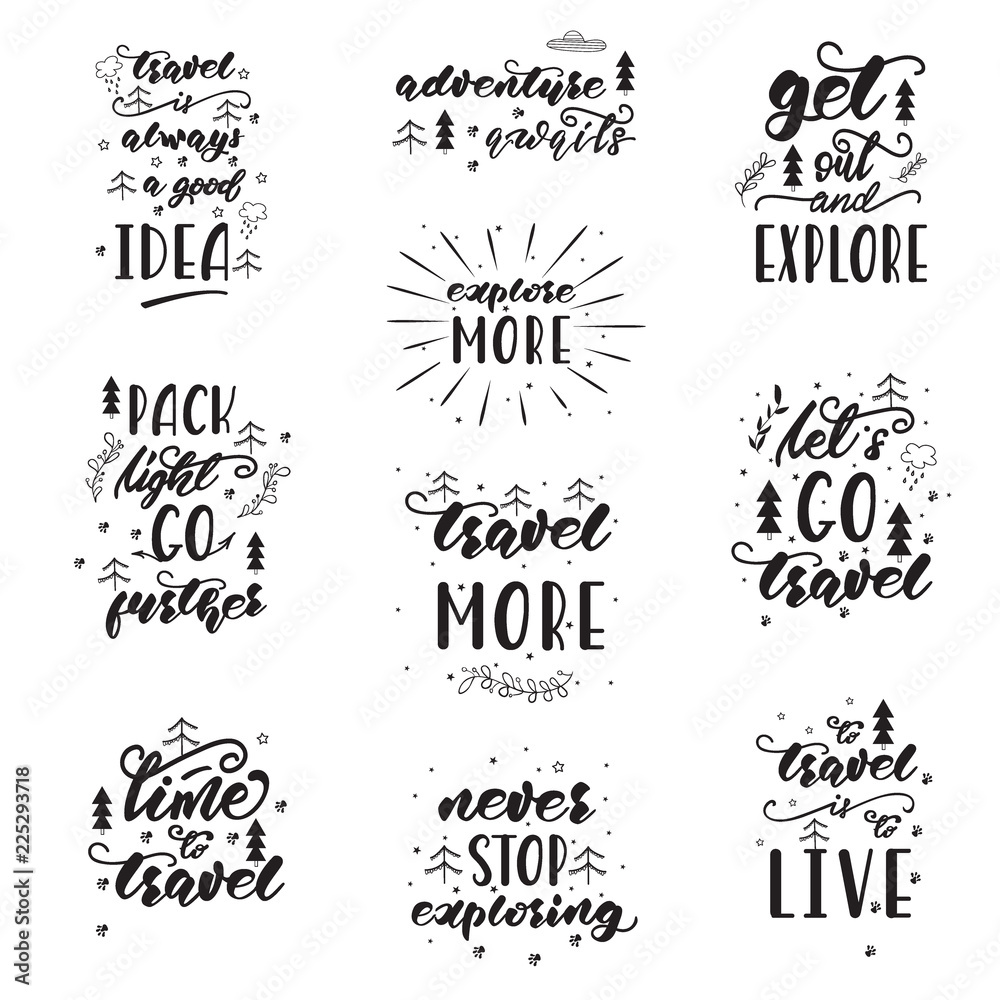 travel
is
always
a good
IDEA
adventure
awaits
get
out
and
EXPLORE
explore
MORE
PACK
light
GO
further
travel
MORE
let's
GO
travel
time
to
travel
never
STOP
exploring
to
travel
is
to
LIVE
Adobe Stock | #225293718